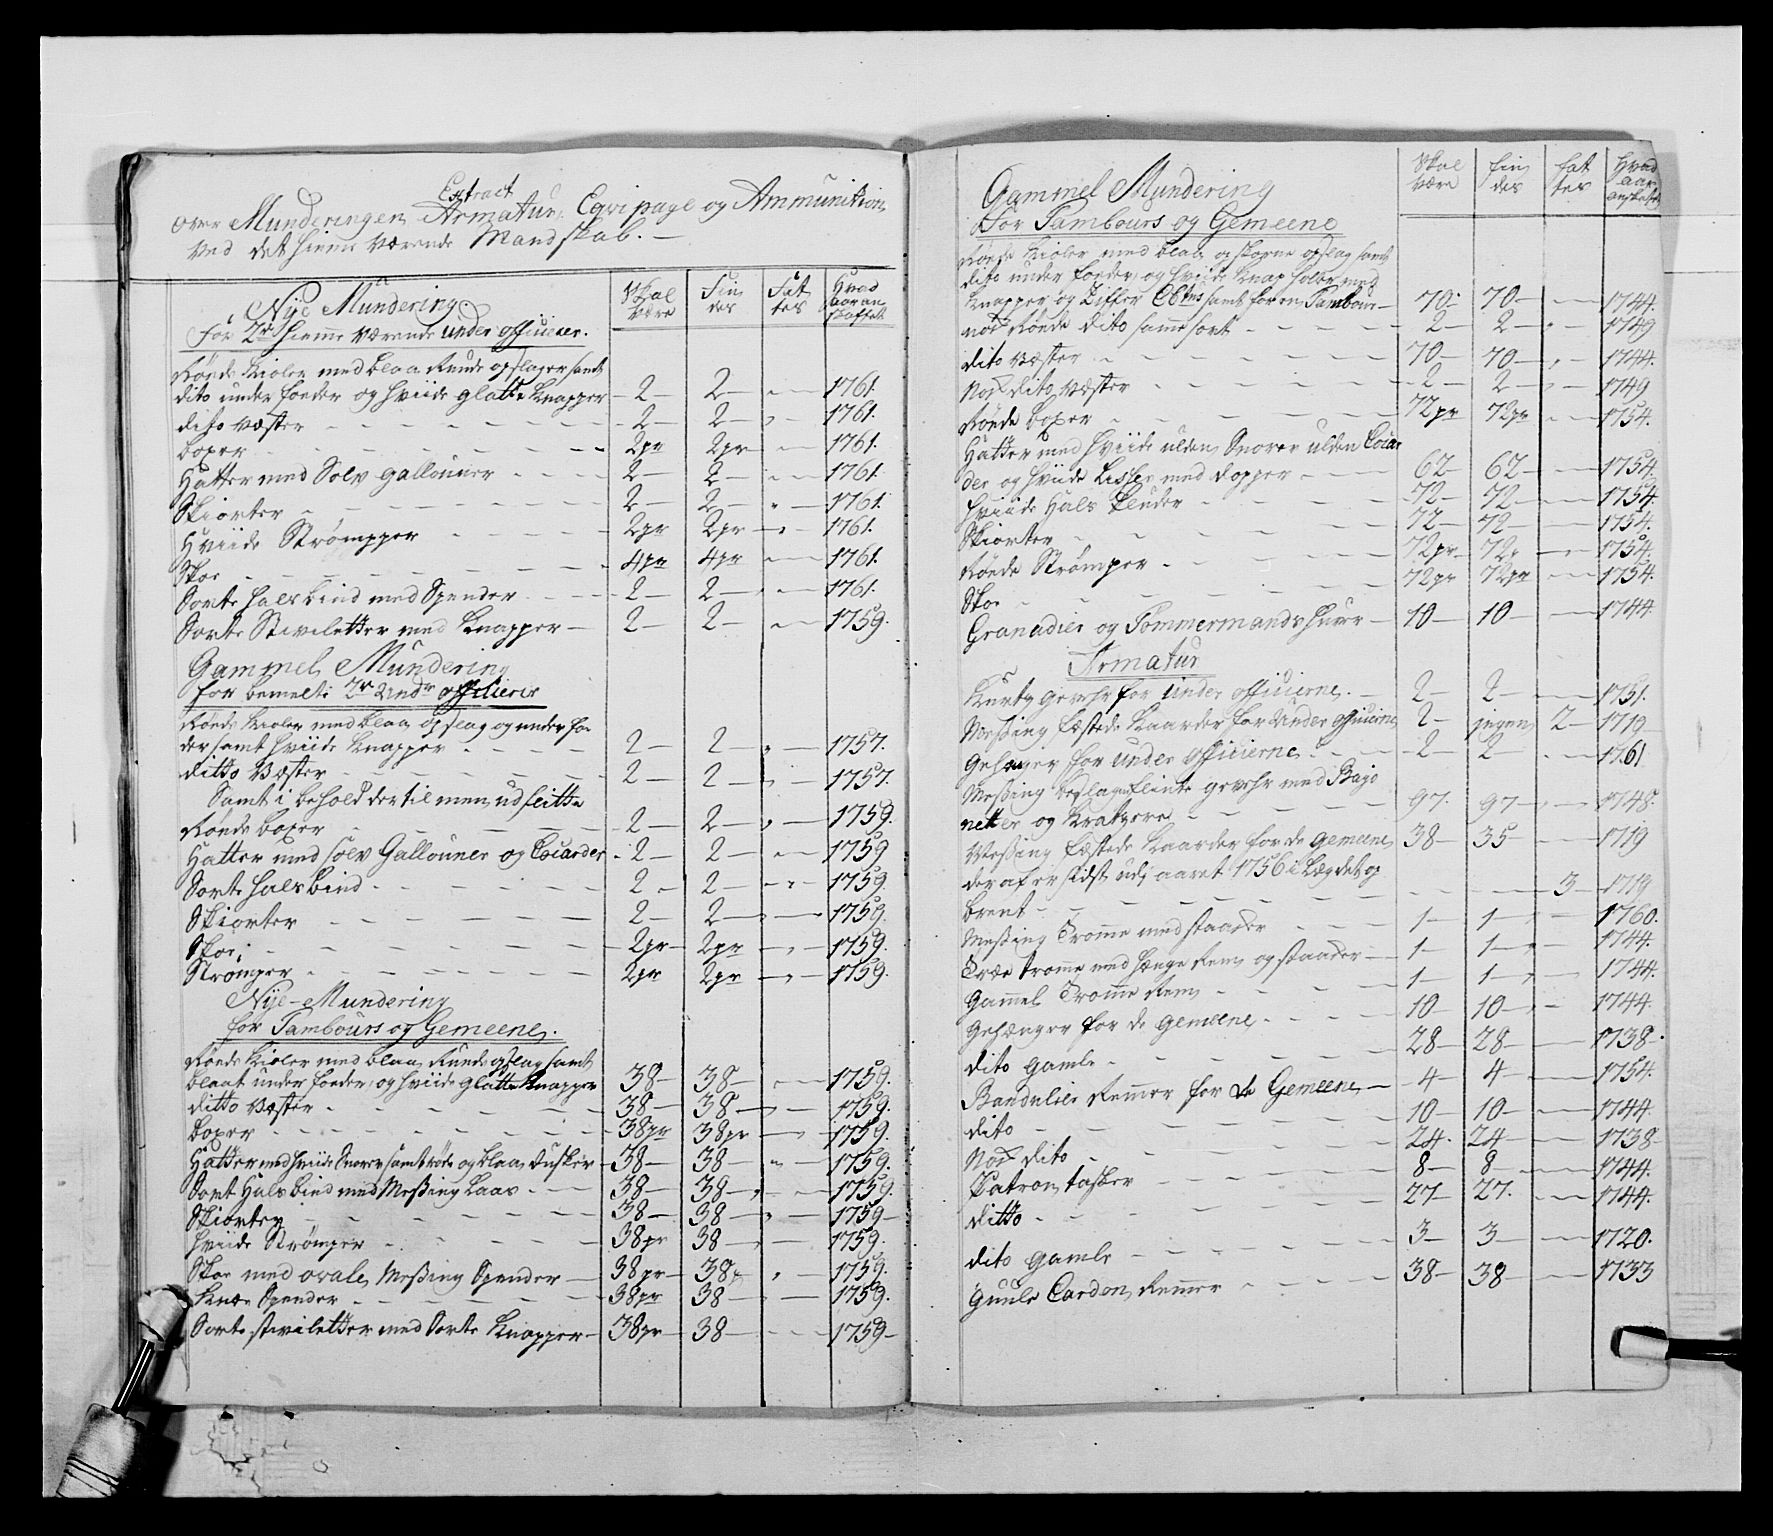 Extract
over Munderingen, Armatur, Eqvipage og Ammunition
ved det hiemme værende Mandskab. —
Nÿe Mundering.
for 2de hiemme værende under officierer.
Skal være
Fin des
Fat tes
Hvad aar an skaffet
Røede kioler med blaa Runde opslager samt
dito under foeder og hviide glatte knapper — 2 — 2 — 1761.
dito væster — 2 — 2 — 1761.
boxer — 2pr 2pr — 1761.
Hatter med Sølv gallouner — 2 — 2 — 1761.
Skiorter — 2 — 2 — 1761.
Hviide Strømpper — 2pr 2pr — 1761.
Skoe — 4pr 4pr — 1761.
Sorte halsbind med Spender — 2 — 2 — 1761.
Sorte Stiviletter med knapper — 2 — 2 — 1759.
Gammel Mundering
for bemelte 2de Undr officierer
Røede kioler med blaa opslag og under foe
der samt hviide knapper — 2 — 2 — 1757.
ditto Væster — 2 — 2 — 1757.
Samt i behold der til men udslitte
Røede boxer — 2 — 2 — 1759.
Hatter med sølv Gallouner og Cocarder — 2 — 2 — 1759
Sorte halsbind — 2 — 2 — 1759.
Skiorter — 2 — 2 — 1759.
Skoe — 2pr — 2pr — 1759.
Strømper — 2pr 2pr — 1759.
Nÿe Mundering
for Tambours og Gemeene.
Røede kioler med blaa Runde opslag samt
blaat under foeder, og hviide glatte knapper 38 — 38 — 1759.
ditto Væster — 38 — 38 — 1759.
boxer — 38pr 38pr — 1759.
Hatter med hviide Snorer samt røde og blaa dusker — 38 — 38 — 1759.
Sort Halsbind med Messing Laas — 38 — 38 — 1759.
Skiorter — 38 — 38 — 1759 —
hviide Strømper — 38pr 38 — 1759.
Skoe med ovale Messing Spender — 38pr — 38 — 1759.
knæe Spender — 38pr 38 — 1759.
Sorte stiviletter med Sorte knapper — 38pr — 38 — 1759 —
Gammel Mundering
for Tambours og Gemeene
Skal være
fin des
fat tes
Hvad aar anskaffet
Røede kioler med blaa opslag samt
dito under foeder, og hviide knap huller med
knapper og Ziffer samt for en Tambour — 70 — 70 — 1744.
nok Røede dito samme sort — 2 — 2 — 1749
dito væster — 70 — 70 — 1744.
Nok dito væster — 2 — 2 — 1749
Røede boxer — 72pr 72pr — 1754.
Hatter med hviide ulden Snorer ulden Cocar
der og hviide Lisser med dopper — 62 — 62 — 1754.
hviide Hals Kluder — 72 — 72 — 1754.
Skiorter — 72 — 72 — 1754.
Røede Strømper — 72pr — 72 — 1754.
Skoe — 72pr 72pr — 1754.
Granadier og Tømmermands huer — 10 — 10 — 1744
Armatur
kurtz gevehr for under officierne — 2 — 2 — 1751.
Messing fæstede kaarder for Under officierne 2 — ingen 2 — 1719
Gehenger for under officierne — 2 — 2 — 1761
Messing beslagen flinte gevehr med Bajo
netter og kratzere — 97. 97 — 1748.
Messing fæstede kaarder for de Gemeene 38 — 35 — 1719
der af er sidst udj aaret 1756 i Lægdet op
brent — 3 — 1719
Messing Tromme med staader — 1 — 1 — 1760.
Træe tromme med hænge Rem og staader — 1 — 1 — 1744.
Gammel Tromme Rem — 1 — 1 — 1744.
Gehænger for de Gemeene — 10 — 10 — 1744.
dito gamle — 28 — 28 — 1738.
Bandulier Remmer for de Gemeene — 4 — 4 — 1754.
dito — 10 — 10 — 1744.
Nok dito — 24. 24 — 1738 —
Patron tasker — 8 — 8 — 1744.
ditto — 27 — 27. — 1744.
dito gamle — 3 — 3 — 1720.
Guule Cardon Remmer — 38 — 38 — 1733